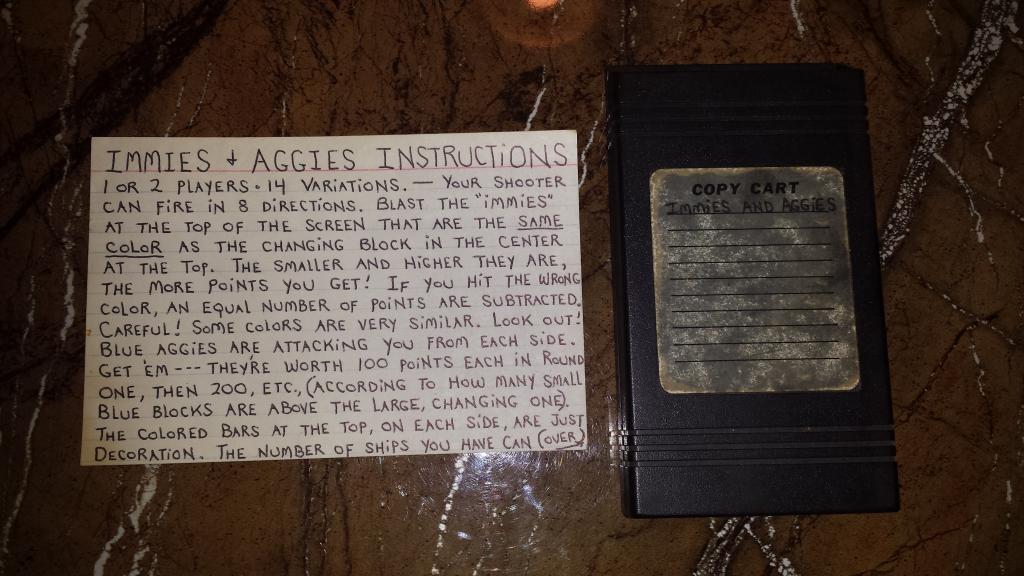 IMMIES + AGGIES INSTRUCTIONS
1 OR 2 PLAYERS • 14 VARIATIONS. — YOUR SHOOTER
CAN FIRE IN 8 DIRECTIONS. BLAST THE "IMMIES"
AT THE TOP OF THE SCREEN THAT ARE THE SAME
COLOR AS THE CHANGING BLOCK IN THE CENTER
AT THE TOP. THE SMALLER AND HIGHER THEY ARE,
THE MORE POINTS YOU GET! IF YOU HIT THE WRONG
COLOR, AN EQUAL NUMBER OF POINTS ARE SUBTRACTED.
CAREFUL! SOME COLORS ARE VERY SIMILAR. LOOK OUT!
BLUE AGGIES ARE ATTACKING YOU FROM EACH SIDE.
GET 'EM --- THEY'RE WORTH 100 POINTS EACH IN ROUND
ONE, THEN 200, ETC., (ACCORDING TO HOW MANY SMALL
BLUE BLOCKS ARE ABOVE THE LARGE, CHANGING ONE).
THE COLORED BARS AT THE TOP, ON EACH SIDE, ARE JUST
DECORATION. THE NUMBER OF SHIPS YOU HAVE CAN (OVER)
COPY CART
IMMIES AND AGGIES